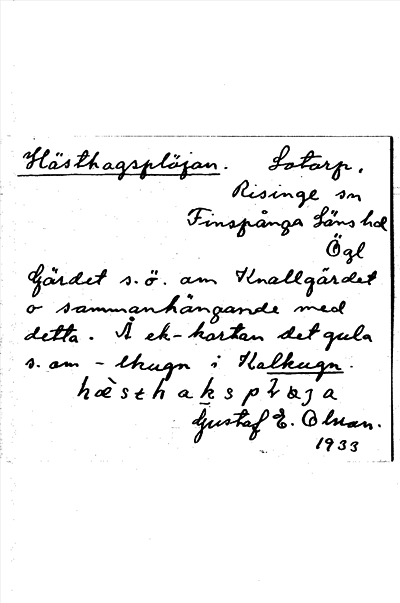 Hästhagsplöjan. Lotorp,
Risinge sn
Finspånga Läns hd
Ögl
Gärdet s.ö. om Knallgärdet
o sammanhängande med
detta. Å ek-kartan det gula
s. om - lkugn i Kalkugn.
Gustaf E. Olson.
1933